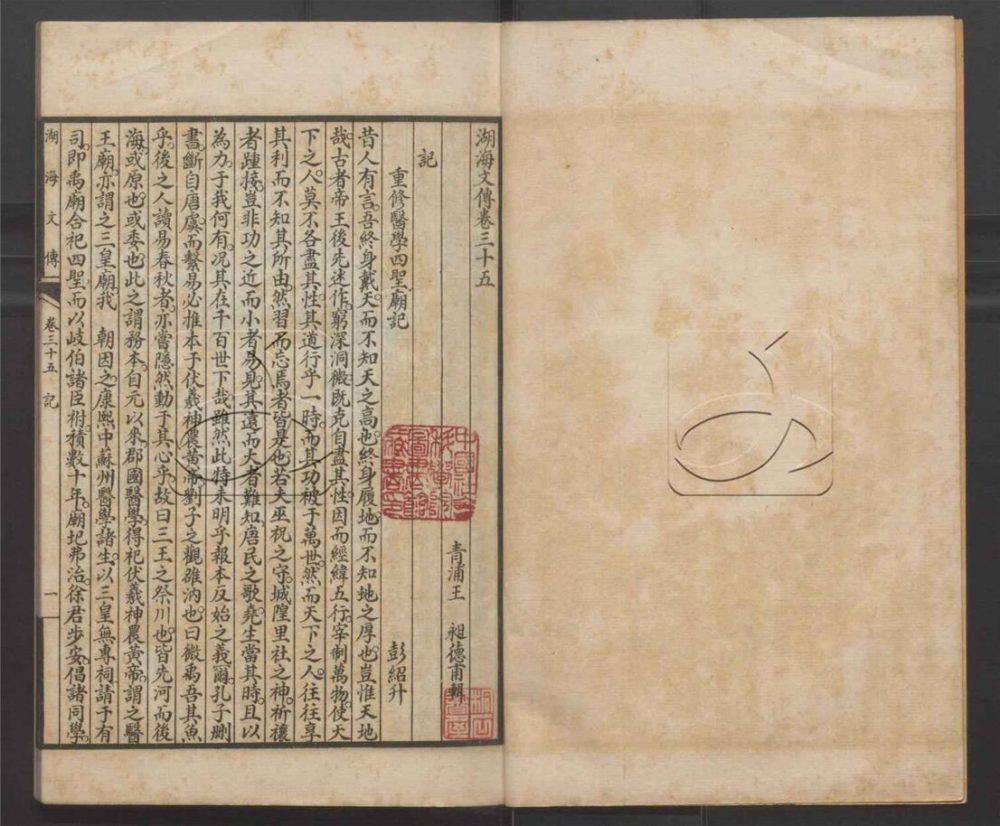 湖海文傳卷三十五
青浦王 昶德甫輯
記
重修醫學四聖廟記 彭紹升
昔人有言吾終身戴天而不知天之高也終身履地而不知地之厚也豈惟天地
哉古者帝王後先迷作窮深洞微既克自盡其性因而經緯五行宰制萬物使天
下之人莫不各盡其性其道行乎一時而其功被于萬世然而天下之人往往享
其利而不知其所由然習而忘焉者皆是也若夫巫祝之守城隍里社之神祈禳
者踵接豈非功之近而小者易見其遠而大者難知唐民之歌堯生當其時且以
為力于我何有况其在千百世下哉雖然此特未明乎報本反始之義爾孔子刪
書斷自唐虞而繫易必推本于伏羲神農黃帝劉子之觀雒汭也曰微禹吾其魚
乎後之人讀易春秋者亦嘗隱然動于其心乎故曰三王之祭川也皆先河而後
海或原也或委也此之謂務本自元以來郡國醫學得祀伏羲神農黃帝謂之醫
王廟亦謂之三皇廟我 朝因之康熙中蘇州醫學諸生以三皇無專祠請于有
司即禹廟合祀四聖而以岐伯諸臣祔積數十年廟圮弗治徐君步安倡諸同學
湖海文傳 卷三十五 記 一